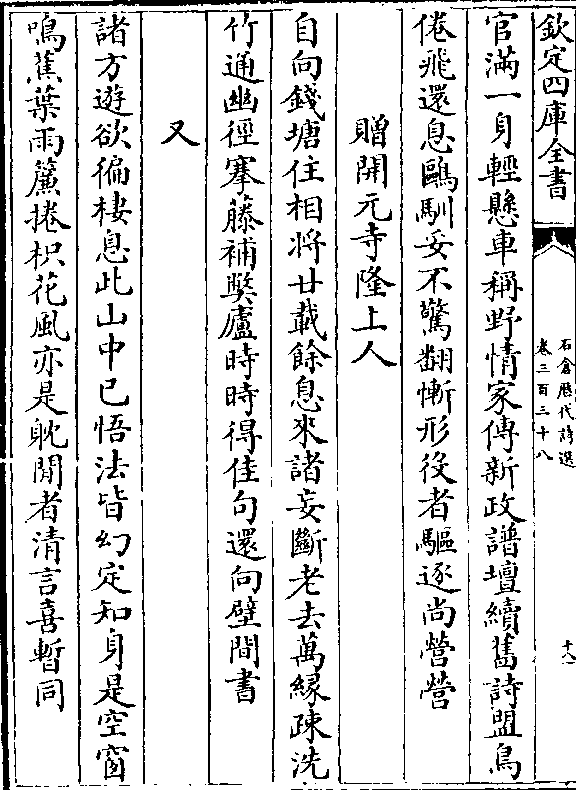 欽定四庫全書
石倉歷代詩選
卷三百三十八
十八
官滿一身輕懸車稱野情家傳新政譜壇續舊詩盟鳥
倦飛還息鷗馴妥不驚翻慚形役者驅逐尚營營
贈開元寺隆上人
自向錢塘住相將廿載餘息來諸妄斷老去萬緣疎洗
竹通幽徑搴藤補獘廬時時得佳句還向壁間書
又
諸方遊欲徧棲息此山中已悟法皆幻定知身是空窗
鳴蕉葉雨簾捲枳花風亦是躭閒者清言喜暫同